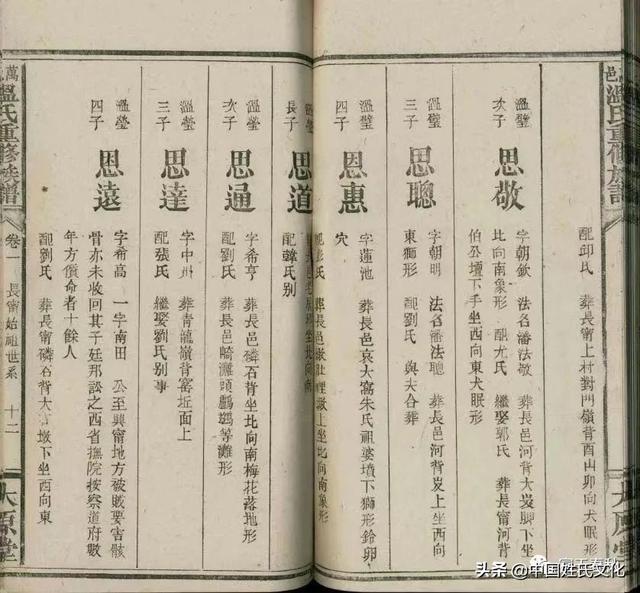 邑溫氏重修族譜
配邱氏　葬長甯上村對門嶺背酉山卯向犬眠形
溫璧
次子
思敬
字朝欽　法名潘法敬　葬長邑河背大岌脚下坐
北向南象形　配尤氏　繼娶郭氏　葬長甯河背
伯公壇下手坐西向東犬眠形
溫璧
三子
思聰
字朝明　法名潘法聰　葬長邑河背大岌上坐西向
東獅形　配劉氏　與夫合葬
溫璧
四子
思惠
字蓮池　葬長邑哀大窩朱氏祖婆墳下獅形鈴卵
穴
坐北向南象形
溫瑩
長子
思道
配韓氏別
溫瑩
次子
思通
字希亨　葬長邑磷石背坐北向南梅花落地形
配劉氏　葬長邑崎灘頭鸕鷀等灘形
溫瑩
三子
思達
字中州　葬青龍嶺背窑坵面上
配張氏　繼娶劉氏別事
溫瑩
四子
思遠
字希高　一字南田　公至興甯地方被賊要害骸
骨亦未收回其子廷邦訟之西省撫院按察道府數
年方償命者十餘人
配劉氏　葬長甯磷石背大宫墩下坐西向東
萬
溫氏重修族譜
卷一　長甯始祖世系　十二
太原堂
太原堂
头条 @中国姓氏文化